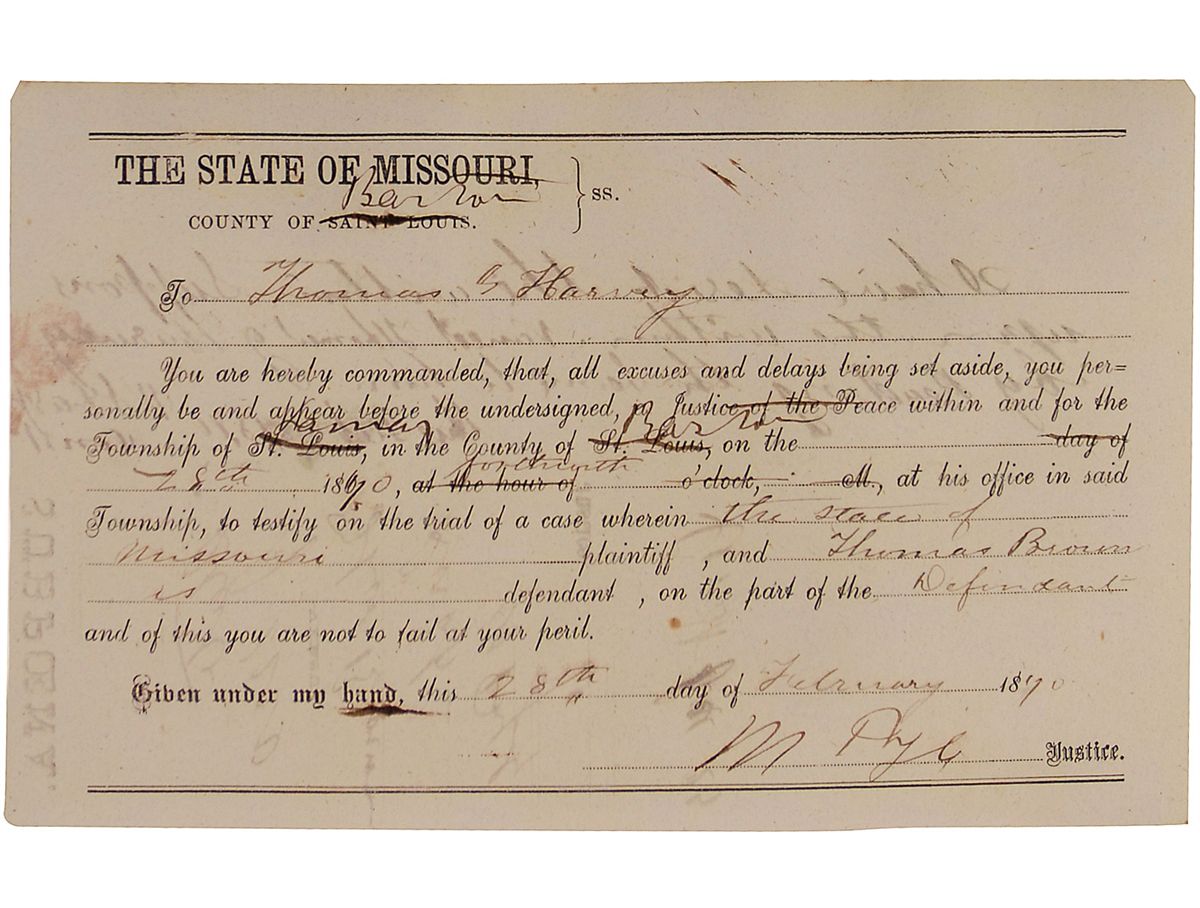 THE STATE OF MISSOURI,
Barton
COUNTY OF SAINT LOUIS. } ss.
To Thomas G Harvey
You are hereby commanded, that, all excuses and delays being set aside, you per=
sonally be and appear before the undersigned, a Justice of the Peace within and for the
Lamar Barton
Township of St. Louis, in the County of St. Louis, on the day of
forthwith
28th 1870, at the hour of o'clock, M., at his office in said
Township, to testify on the trial of a case wherein the state of
Missouri plaintiff, and Thomas Brown
is defendant, on the part of the Defendant
and of this you are not to fail at your peril.
Given under my hand, this 28th day of February 1870
M Pyle Justice.
SUBPOENA.